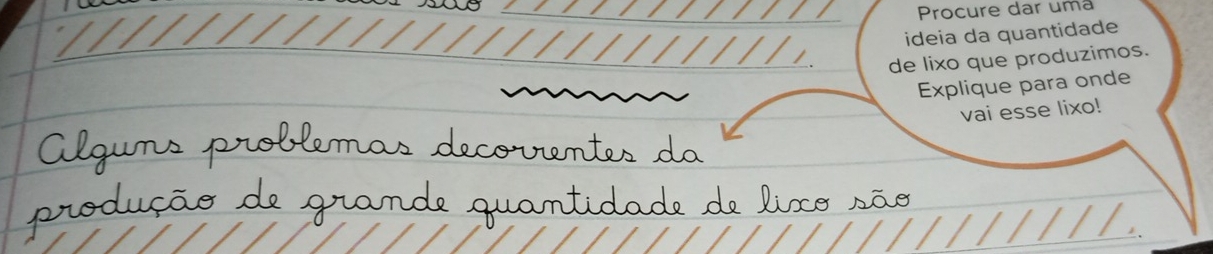 são
Procure dar uma
ideia da quantidade
de lixo que produzimos.
Explique para onde
vai esse lixo!
Alguns problemas decorrentes da
produção de grande quantidade de lixo são